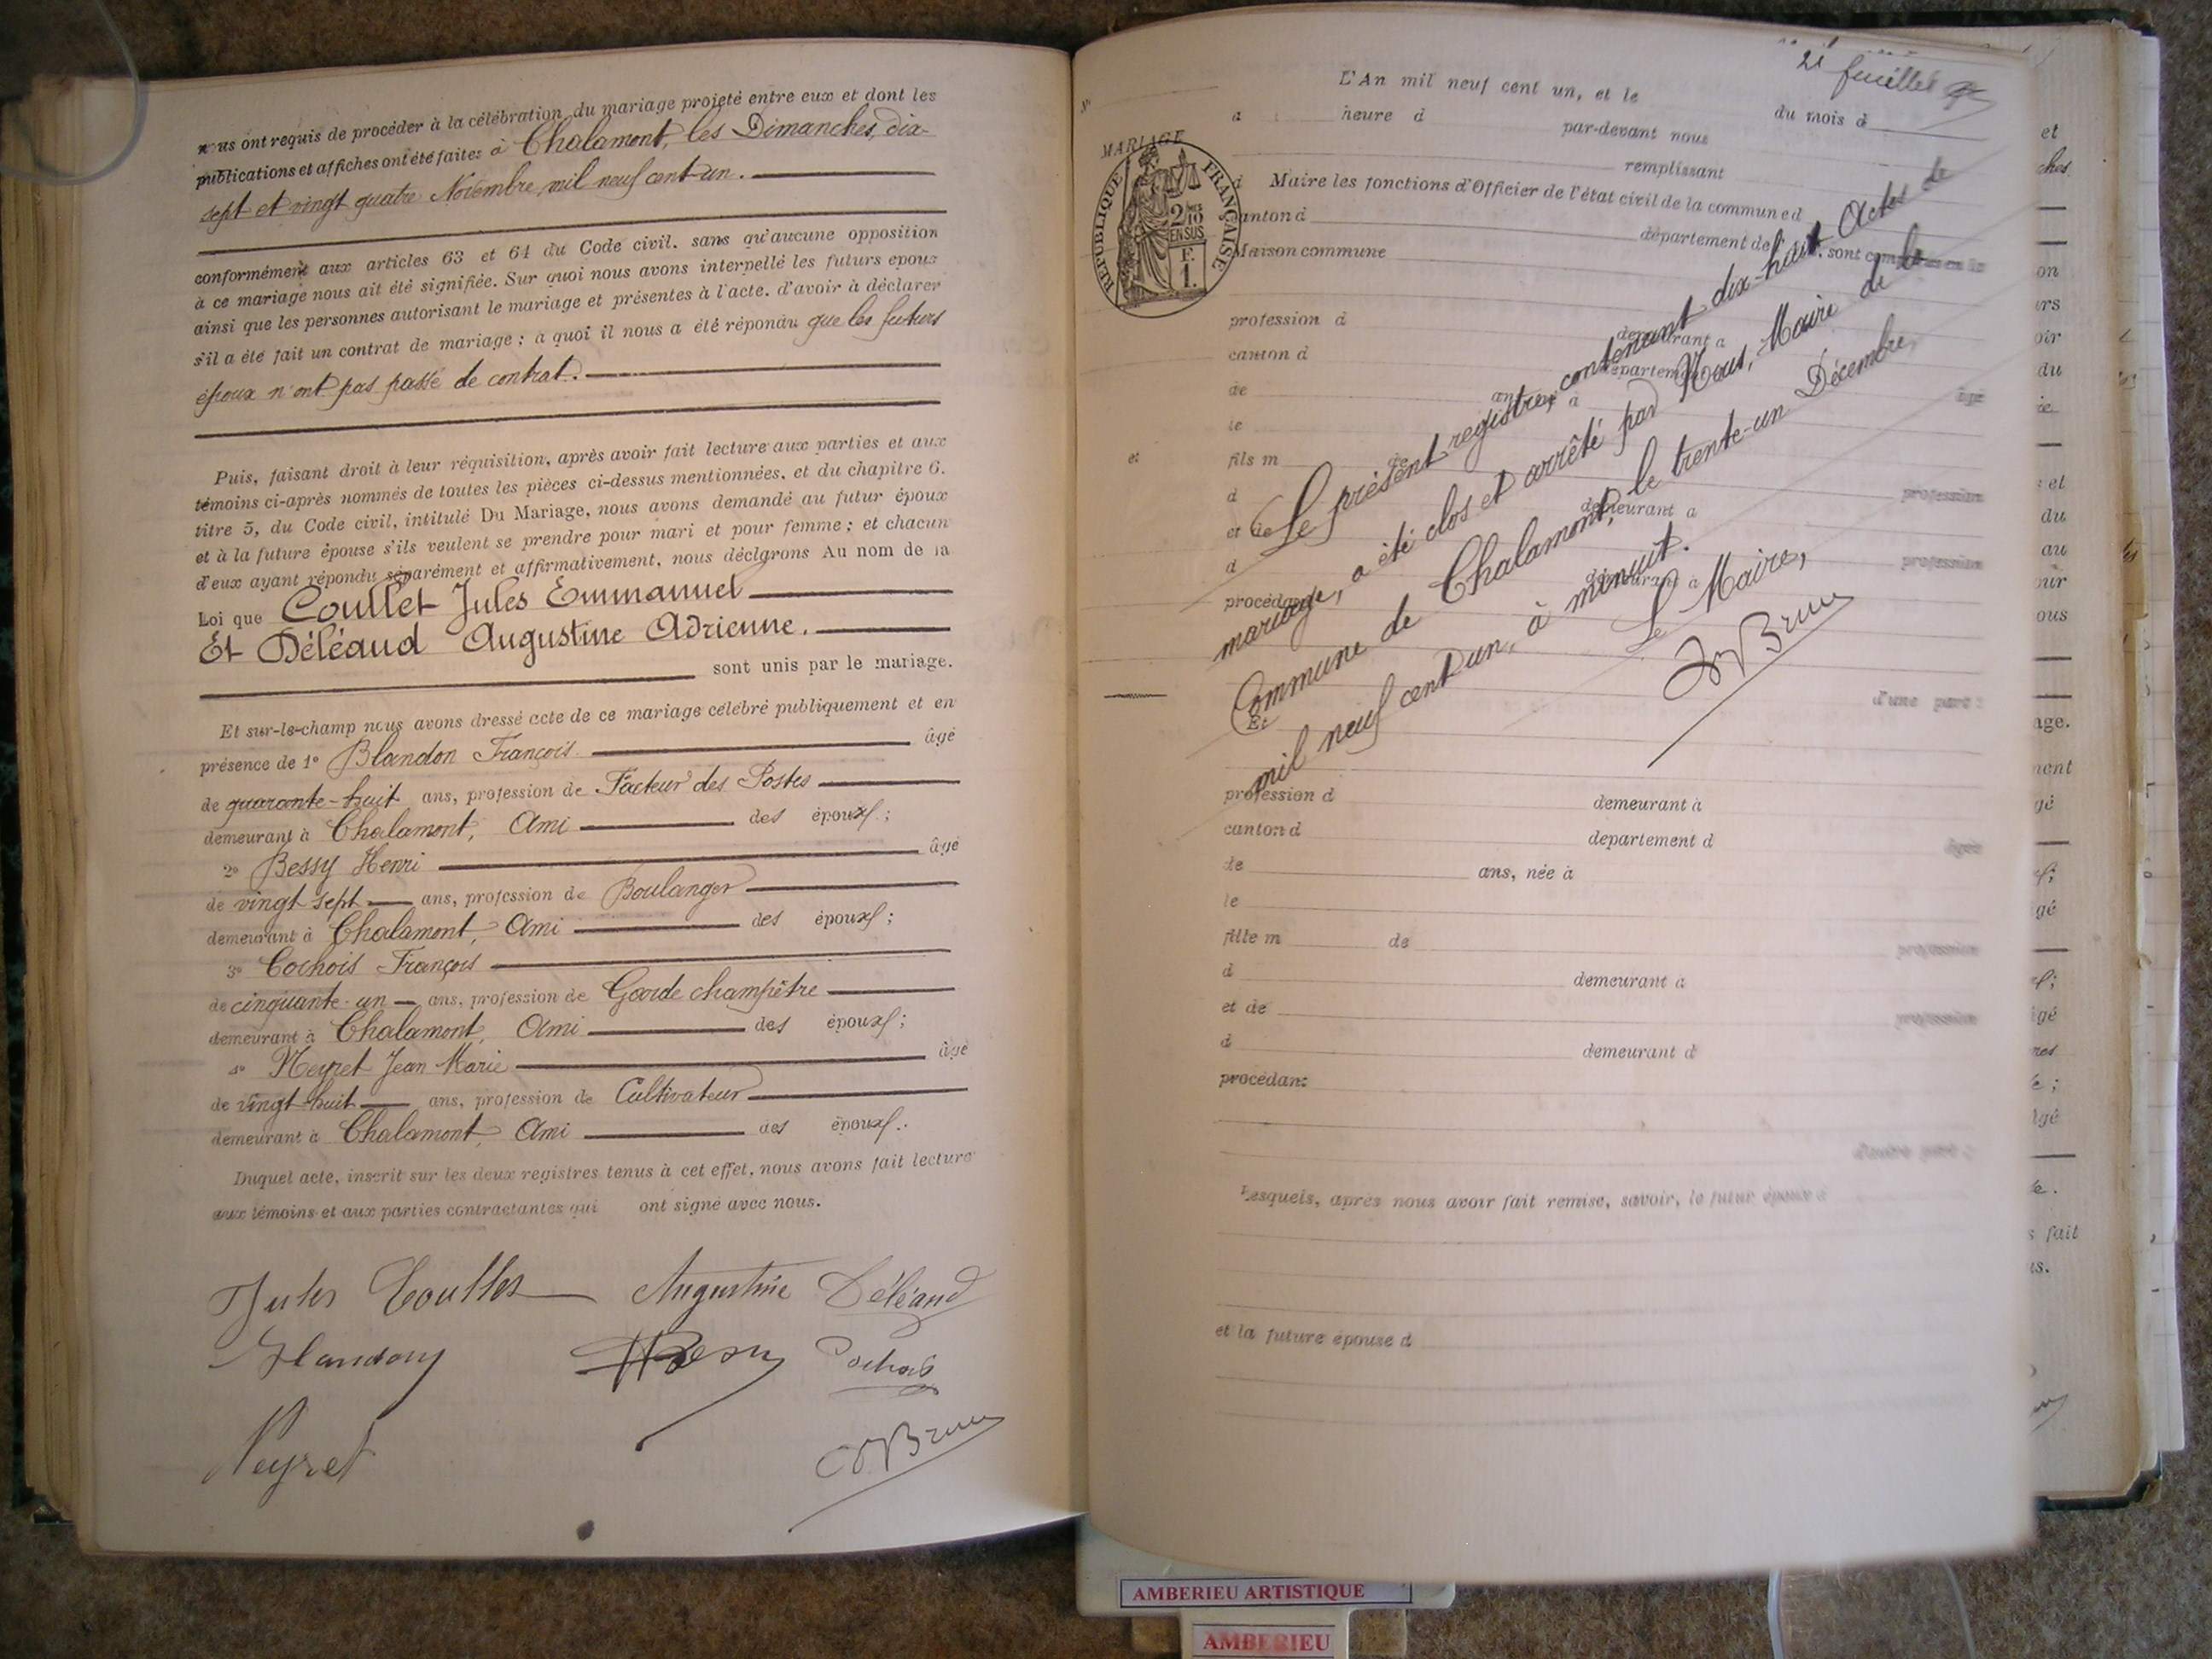 nous ont requis de procéder à la célébration du mariage projeté entre eux et dont les
publications et affiches ont été faites à Chalamont, les Dimanches, dix-
sept et vingt quatre Novembre mil neuf cent un.
conformément aux articles 63 et 64 du Code civil. sans qu'aucune opposition
à ce mariage nous ait été signifiée. Sur quoi nous avons interpellé les futurs epoux
ainsi que les personnes autorisant le mariage et présentes à l'acte. d'avoir à déclarer
s'il a été fait un contrat de mariage ; à quoi il nous a été répondu que les futurs
époux n'ont pas passé de contrat.
Puis, faisant droit à leur réquisition, après avoir fait lecture aux parties et aux
témoins ci-après nommés de toutes les pièces ci-dessus mentionnées, et du chapitre 6.
titre 5, du Code civil, intitulé Du Mariage, nous avons demandé au futur époux
et à la future épouse s'ils veulent se prendre pour mari et pour femme ; et chacun
d'eux ayant répondu séparément et affirmativement, nous déclarons Au nom de la
Loi que Coullet Jules Emmanuel
Et Déléaud Augustine Adrienne.
sont unis par le mariage.
Et sur-le-champ nous avons dressé acte de ce mariage célébré publiquement et en
présence de 1º Blandon François âgé
de quarante-huit ans, profession de Facteur des Postes
demeurant à Chalamont, Ami des époux ;
2º Bessy Henri âgé
de vingt sept ans, profession de Boulanger
demeurant à Chalamont, Ami des époux ;
3º Cochois François
de cinquante-un ans, profession de Garde champêtre
demeurant à Chalamont, Ami des époux ;
4º Neyret Jean Marie âgé
de vingt-huit ans, profession de Cultivateur
demeurant à Chalamont, Ami des époux.
Duquel acte, inscrit sur les deux registres tenus à cet effet, nous avons fait lecture
aux témoins et aux parties contractantes qui ont signé avec nous.
Jules Coullet Augustine Déléaud
Blandon HBessy Cochois
Neyret
Brun
21 feuillet
L'An mil neuf cent un, et le du mois d
à heure d par-devant nous
MARIAGE
remplissant
d Maire les fonctions d'Officier de l'état civil de la commune d
REPUBLIQUE FRANÇAISE
2/10 EN SUS
F. 1.
canton d département de
Maison commune
profession d demeurant à
canton d département
de ans âgé
le
et fils m de
d profession
et de demeurant à
d profession
procédant demeurant à
Le présent registre, contenant dix-huit Actes de
mariage, a été clos et arrêté par Nous, Maire de la
Commune de Chalamont, le trente-un Décembre
mil neuf cent un, à minuit.
Le Maire,
Brun
d'une part ;
Et
profession d demeurant à
canton d departement d
de ans, née à âgée
le
fille m de
d profession
demeurant à
et de
d profession
demeurant d
procédant
d'autre part ;
Lesquels, après nous avoir fait remise, savoir, le futur époux d
et la future épouse d
AMBERIEU ARTISTIQUE
AMBERIEU